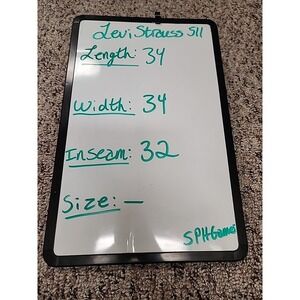 Levi Strauss 511
Length: 34
Width: 34
Inseam: 32
Size: —
SPHGames